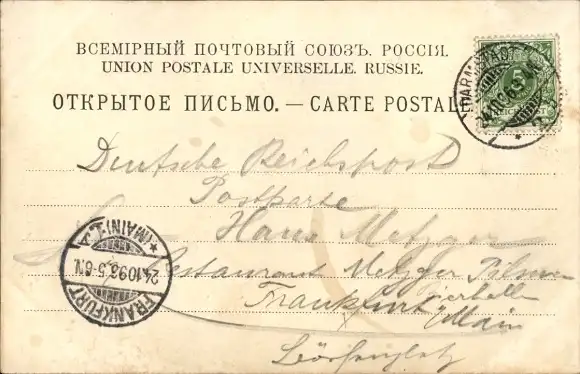 ВСЕМІРНЫЙ ПОЧТОВЫЙ СОЮЗЪ. РОССІЯ.
UNION POSTALE UNIVERSELLE. RUSSIE.
ОТКРЫТОЕ ПИСЬМО. — CARTE POSTAL
DARMSTADT
5
Deutsche Reichspost
Postkarte
Hans Metzger
Restaurant Metzger Pilsner
Bierhalle
Frankfurt
Main
Börsenplatz
FRANKFURT
(MAIN) 1.
24.10.98.5-6N.